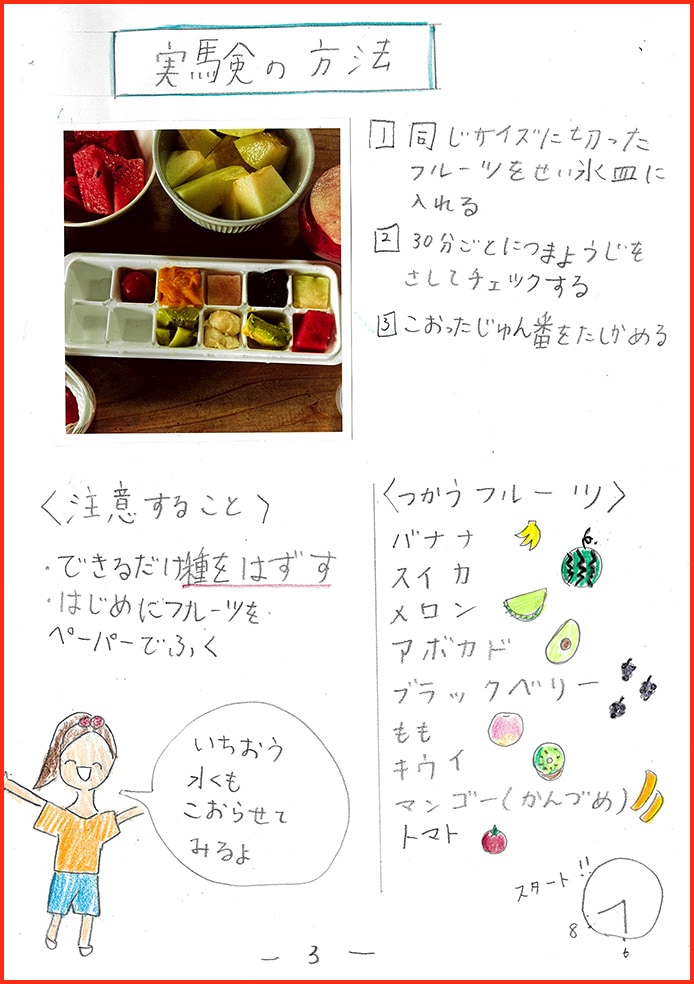 実験の方法
1 同じサイズに切った
フルーツをせい氷皿に
入れる
2 30分ごとにつまようじを
さしてチェックする
3 こおったじゅん番をたしかめる
〈注意すること〉
・できるだけ種をはずす
・はじめにフルーツを
ペーパーでふく
いちおう
氷くも
こおらせて
みるよ
〈つかうフルーツ〉
バナナ
スイカ
メロン
アボカド
ブラックベリー
もも
キウイ
マンゴー(かんづめ)
トマト
スタート!!
8
6
- 3 -